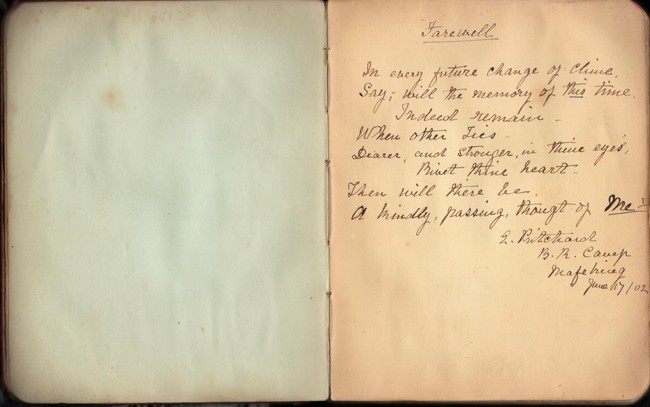 Farewell
In every future change of clime,
Say; will the memory of this time.
Indeed remain -
When other Ties -
Dearer, and stronger, in thine eyes,
Rivet thine heart -
Then will there be,
A kindly, passing, thought of Me?
E. Pritchard
B. R. Camp
Mafeking
June 17/02